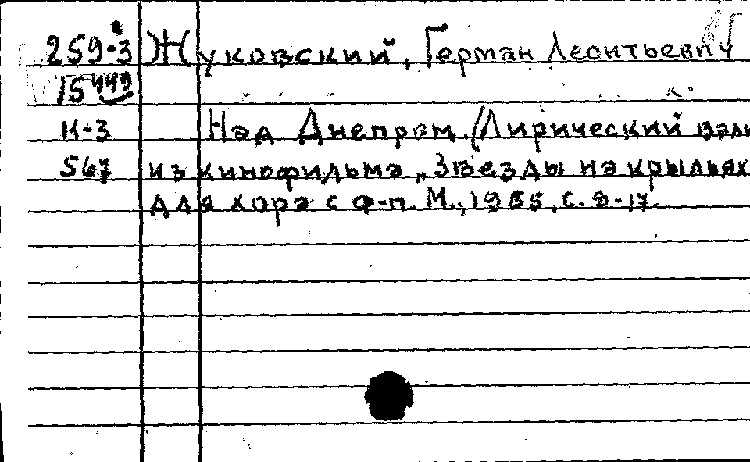 259-3 Жуковский, Герман Леонтьевич
15449
И-3 Над Днепром. (Лирический валь
567 из кинофильма „Звезды на крыльях
для хора с ф-п. М., 1955, с. 9-17.